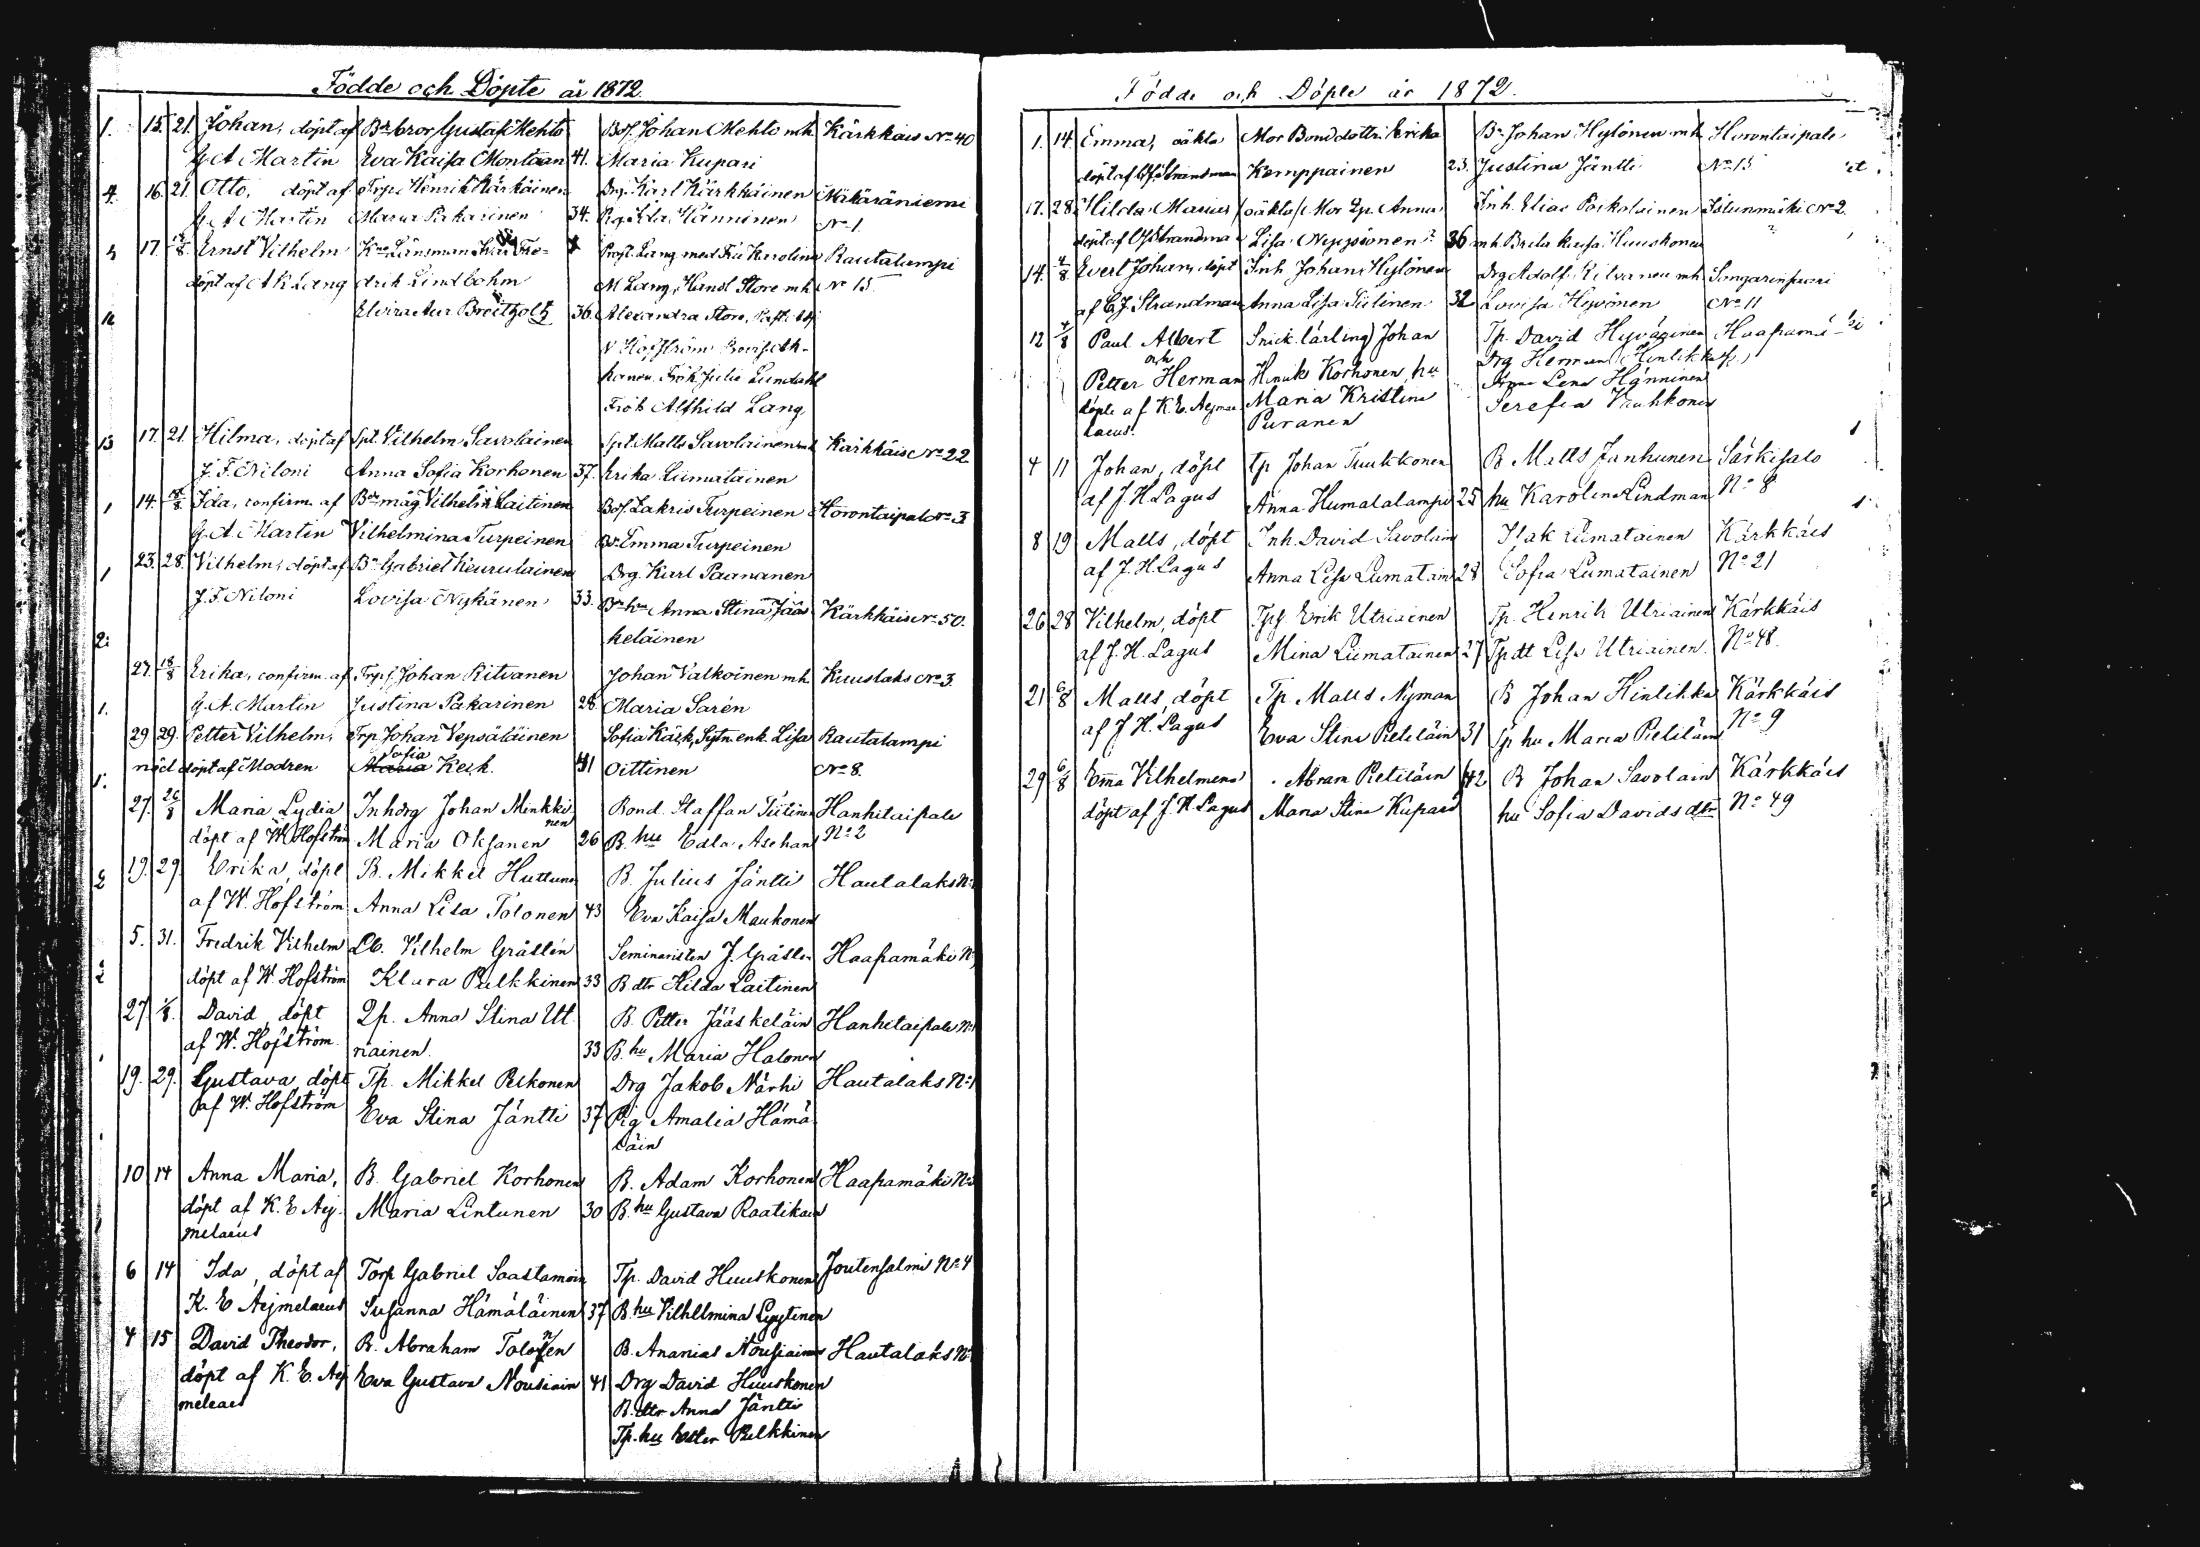 Födde och Döpte år 1872.
15. 21. Johan, döpt af Bdebror Gustaf Mehto Bos. Johan Mehto mh Kärkkäis No 40
G. A Martin Eva Kaisa Montaan 41. Maria Kupari
16. 21. Otto, döpt af Trp. Henrik Kärkäinen Drg. Karl Kärkkäinen Mäkäräniemi
G. A Martin Maria Pakarinen 34. Pig. Ida Hänninen No 1
17. Ernst Vilhelm Länsman Karl Fre- Prost. Lang med Fru Karolina Rautalampi
döpt af A K Lang drik Lindbohm M Lang, Handl Store mh No 15.
Elvira Aur Breitholtz 36. Alexandra Store, Past. Adj
W Hoffström
Frök Julie Lundahl
Frök Alfhild Lang
17. 21. Hilma, döpt af Spt. Vilhelm Savolainen Spt. Matts Savolainen mh Kärkkäis No 22
J. F. Niloni Anna Sofia Korhonen 37. Erika Liimatainen
14. 18/8. Ida, confirm. af Bdemåg Vilhelm Laitinen Bos. Zakris Turpeinen Horontaipale No 3.
G. A. Martin Vilhelmina Turpeinen Emma Turpeinen
23. 28. Vilhelm, döpt af Bn Gabriel Keurulainen Drg. Karl Paananen
J. F. Niloni Lovisa Nykänen 33. Anna Stina Jääs Kärkkäis No 50.
keläinen
27. 18/8 Erika, confirm. af Johan Ritvanen Johan Valkoinen mh. Kuuslaks No 3.
G. A. Martin Justina Pakarinen 28. Maria Sarén
29 29. Petter Vilhelm, Trp Johan Vepsäläinen Sofia Käck, Sytn. enk. Lisa Rautalampi
nöd döpt af Modren Sofia Keck. 41 Oittinen No 8.
27. 26/8 Maria Lydia Inhdrg Johan Minkki Bond. Staffan Tiitinen Hanhitaipale
nen
döpt af W. Hofström Maria Oksanen 26 B. hu Edla Asehan No 2
19. 29. Erika, döpt B. Mikkel Huttunen B. Julius Jäntti Hautalaks No
af W. Hofström Anna Lisa Tolonen 43 Eva Kaisa Maukonen
5. 31. Fredrik Vilhelm Vilhelm Grästén Seminaristen J. Grästen Haapamäki No
döpt af W. Hofström Klara Pulkkinen 33 B dtr Hilda Laitinen
27. 1/8. David, döpt Qp. Anna Stina Ut B. Petter Jääskeläin Hanhitaipale No
af W. Hofström riainen. 33 B. hu Maria Halonen
19. 29. Gustava, döpt Tp. Mikkel Pelkonen Drg Jakob Närhi Hautalaks No 1
af W. Hofström Eva Stina Jäntti 37 Pig Amalia Hämä
läin
10 14 Anna Maria, B. Gabriel Korhonen B. Adam Korhonen Haapamäki No
döpt af K. E Aej- Maria Lintunen 30 B. hu Gustava Raatikain
melaeus
6 14 Ida, döpt af Torp Gabriel Saastamoin Tp. David Huuskonen Joutensalmi No 4
K. E Aejmelaeus Susanna Hämäläinen 37 B. hu Vilhelmina Lyytinen
4 15 David Theodor, B. Abraham Tolonen B. Ananias Nousiainen Hautalaks No
döpt af K. E. Aej Eva Gustava Nousiain 41 Drg David Huuskonen
melaeus B. dtr Anna Jäntti
Tp. hu Ester Pulkkinen
Födde och Döpte år 1872.
1. 14. Emma, oäkta Mor Bonddottr. Erika Bn Johan Hytönen mh. Horontaipale
döpt af C J. Strandman Kemppainen 23. Justina Jäntti No 13
17. 28. Hilda Maria (oäkta) Mor Qp. Anna Inh. Elias Poikolainen No 2.
döpt af C J Strandman Lisa Nyyssönen 36 mh Brita Kaisa Huuskonen
14. 4/8 Evert Johan, döpt Inh Johan Hytönen Drg Adolf Ritvanen mh Songarinsaari
af C. J. Strandman Anna Lisa Tiitinen 32 Lovisa Hyvönen No 11
12 4/8 Paul Albert Snick. lärling Johan Tp. David Hyvärinen Haapamä-ki
och Drg Herman Hinlikka
Petter Herman Henrik Korhonen, hu Anna Lena Hänninen
döpte af K. E. Aejme Maria Kristina Serefia Vauhkonen
laeus. Puranen
4 11 Johan, döpt Tp Johan Tuukkonen B Matts Janhunen Särkisalo
af J. H. Lagus Anna Humalalampi 25 hu Karolina Lindman No 8
8 19 Matts, döpt Inh. David Savolain Isak Liimatainen Kärkkäis
af J. H. Lagus Anna Lisa Liimatain 28 Sofia Liimatainen No 21
26 28 Vilhelm, döpt Erik Utriainen Tp. Henrik Utriainen Kärkkäis
af J. H. Lagus Mina Liimatainen 27 Tp dt Lisa Utriainen. No 48.
21 6/8 Matts, döpt Tp. Matts Nyman B Johan Hinlikka Kärkkäis
af J H. Lagus Eva Stina Pietiläin 31 Tp hu Maria Pietiläin No 9
29 6/8 Emma Vilhelmina Abram Pietiläin 42 B Johan Savolain Kärkkäis
döpt af J. H. Lagus Maria Stina Kupari hu Sofia Davidsdtr No 49